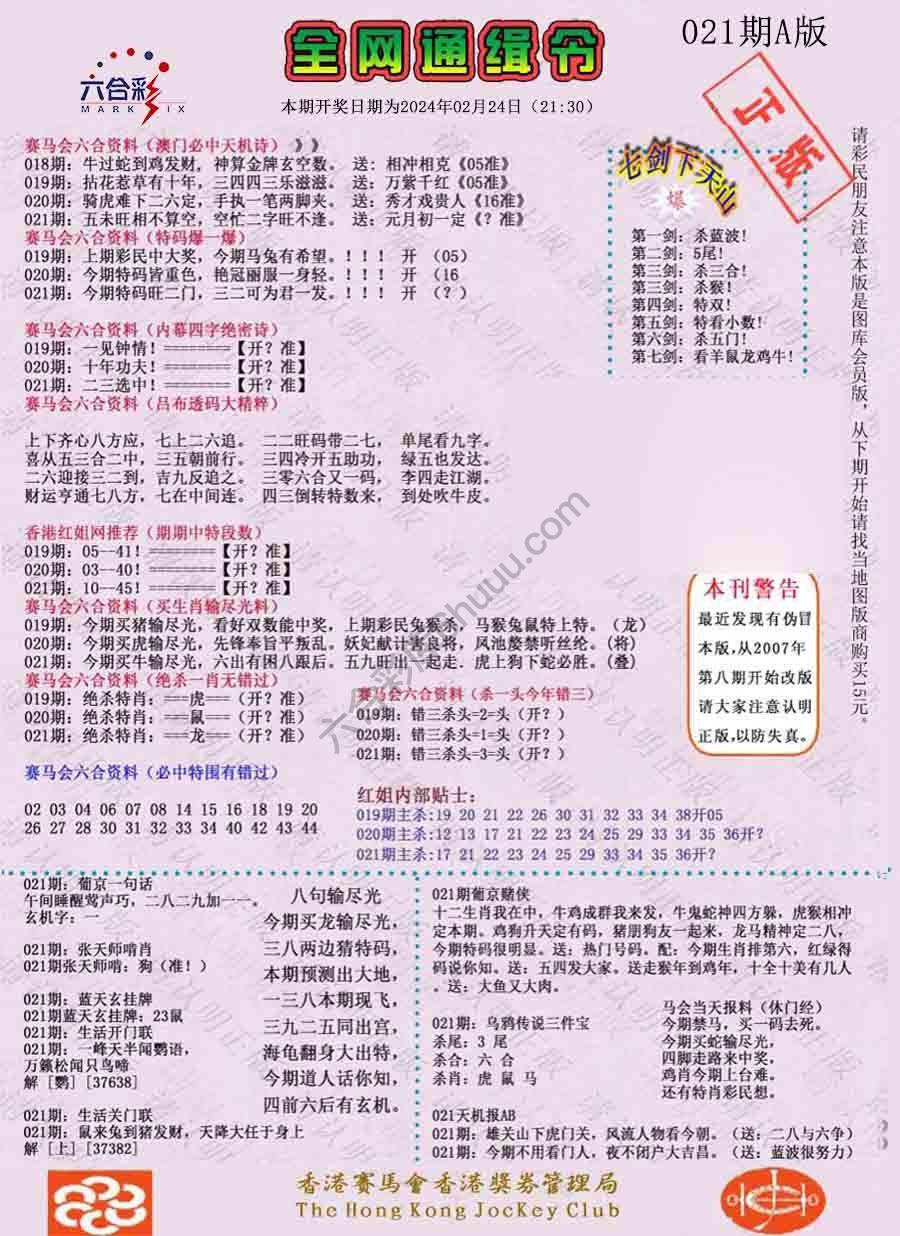 六合彩
MARK SIX
全网通缉令
021期A版
本期开奖日期为2024年02月24日（21:30）
正版
赛马会六合资料（澳门必中天机诗）》》
018期：牛过蛇到鸡发财，神算金牌玄空数。 送：相冲相克《05准》
019期：拈花惹草有十年，三四四三乐滋滋。 送：万紫千红《05准》
020期：骑虎难下二六定，手执一笔两脚夹。 送：秀才戏贵人《16准》
021期：五未旺相不算空，空忙二字旺不逢。 送：元月初一定《？准》
赛马会六合资料（特码爆一爆）
019期：上期彩民中大奖，今期马兔有希望。！！！ 开 （05）
020期：今期特码皆重色，艳冠丽服一身轻。！！！ 开 （16
021期：今期特码旺二门，三二可为君一发。！！！ 开 （？）
七剑下天山
爆
第一剑：杀蓝波！
第二剑：5尾！
第三剑：杀三合！
第三剑：杀猴！
第四剑：特双！
第五剑：特看小数！
第六剑：杀五门！
第七剑：看羊鼠龙鸡牛！
请彩民朋友注意本版是图库会员版，从下期开始请找当地图版商购买15元。
赛马会六合资料（内幕四字绝密诗）
019期：一见钟情！========【开？准】
020期：十年功夫！========【开？准】
021期：二三选中！========【开？准】
赛马会六合资料（吕布透码大精粹）
上下齐心八方应，七上二六追。 二二旺码带二七， 单尾看九字。
喜从五三合二中，三五朝前行。 三四冷开五助功， 绿五也发达。
二六迎接三二到，吉九反追之。 三零六合又一码， 李四走江湖。
财运亨通七八方，七在中间连。 四三倒转特数来， 到处吹牛皮。
香港红姐网推荐（期期中特段数）
019期：05--41！========【开？准】
020期：03--40！========【开？准】
021期：10--45！========【开？准】
赛马会六合资料（买生肖输尽光料）
019期：今期买猪输尽光，看好双数能中奖，上期彩民兔猴杀，马猴兔鼠特上特。（龙）
020期：今期买虎输尽光，先锋奉旨平叛乱。妖妃献计害良将，风池嫠禁听丝纶。（将）
021期：今期买牛输尽光，六出有困八跟后。五九旺出一起走．虎上狗下蛇必胜。（叠）
赛马会六合资料（绝杀一肖无错过）
019期：绝杀特肖：===虎===（开？准）
020期：绝杀特肖：===鼠===（开？准）
021期：绝杀特肖：===龙===（开？准）
赛马会六合资料（杀一头今年错三）
019期：错三杀头=2=头（开？）
020期：错三杀头=1=头（开？）
021期：错三杀头=3=头（开？）
本刊警告
最近发现有伪冒
本版，从2007年
第八期开始改版
请大家注意认明
正版，以防失真。
赛马会六合资料（必中特围有错过）
02 03 04 06 07 08 14 15 16 18 19 20
26 27 28 30 31 32 33 34 40 42 43 44
红姐内部贴士：
019期主杀：19 20 21 22 26 30 31 32 33 34 38开05
020期主杀：12 13 17 21 22 23 24 25 29 33 34 35 36开？
021期主杀：17 21 22 23 24 25 29 33 34 35 36开？
021期：葡京一句话
午间睡醒莺声巧，二八二九加一一。
玄机字：一
021期：张天师啃肖
021期张天师啃：狗（准！）
021期：蓝天玄挂牌
021期蓝天玄挂牌：23鼠
021期：生活开门联
021期：一峰天半闻鹦语，
万籁松闻只鸟啼
解 [鹦] [37638]
021期：生活关门联
021期：鼠来兔到猪发财，天降大任于身上
解 [上] [37382]
八句输尽光
今期买龙输尽光，
三八两边猜特码，
本期预测出大地，
一三八本期现飞，
三九二五同出宫，
海龟翻身大出特，
今期道人话你知，
四前六后有玄机。
021期葡京赌侠
十二生肖我在中，牛鸡成群我来发，牛鬼蛇神四方躲，虎猴相冲
定本期。鸡狗升天定有码，猪朋狗友一起来，龙马精神定二八，
今期特码很明显。送：热门号码。配：今期生肖排第六，红绿得
码说你知。送：五四发大家。送走猴年到鸡年，十全十美有几人
。送：大鱼又大肉。
021期：乌鸦传说三件宝
杀尾：3 尾
杀合：六 合
杀肖：虎 鼠 马
马会当天报料（休门经）
今期禁马，买一码去死。
今期买蛇输尽光，
四脚走路来中奖，
鸡肖今期上台难。
还有特肖彩民想。
021天机报AB
021期：雄关山下虎门关，风流人物看今朝。（送：二八与六争）
021期：今期不用看门人，夜不闭户大吉昌。（送：蓝波很努力）
香港賽馬會香港獎券管理局
The Hong Kong JocKey Club